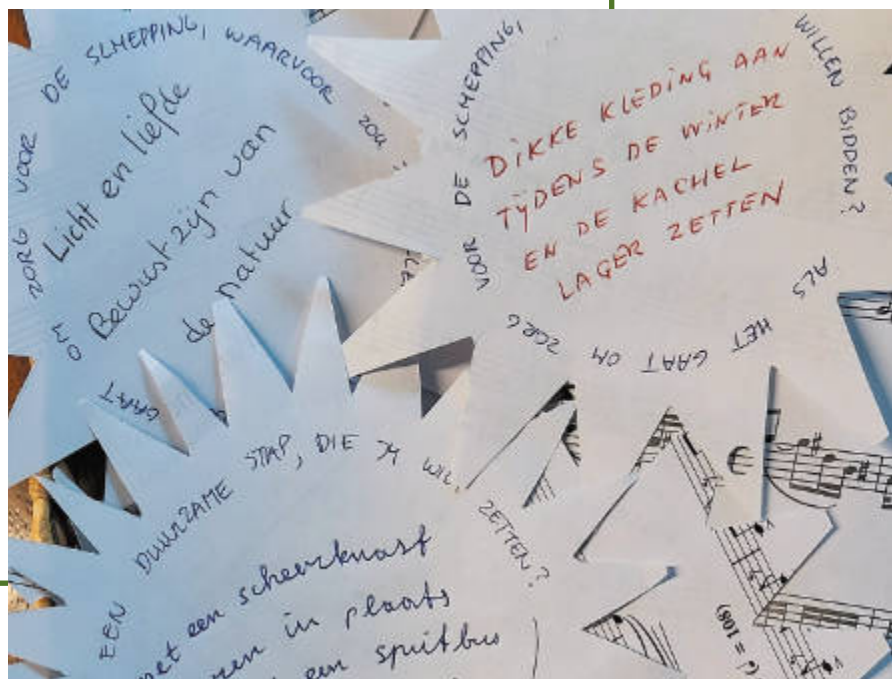 OM ZORG VOOR DE SCHEPPING, WAARVOOR ZOU
Licht en liefde
Bewust zijn van
de natuur
GAAT
ALS HET GAAT OM ZORG VOOR DE SCHEPPING,
WILLEN BIDDEN?
DIKKE KLEDING AAN
TIJDENS DE WINTER
EN DE KACHEL
LAGER ZETTEN
EEN DUURZAME STAP, DIE JE WIL ZETTEN?
met een scheerkwast
in plaats
een spuitbus
(♩ = 108)